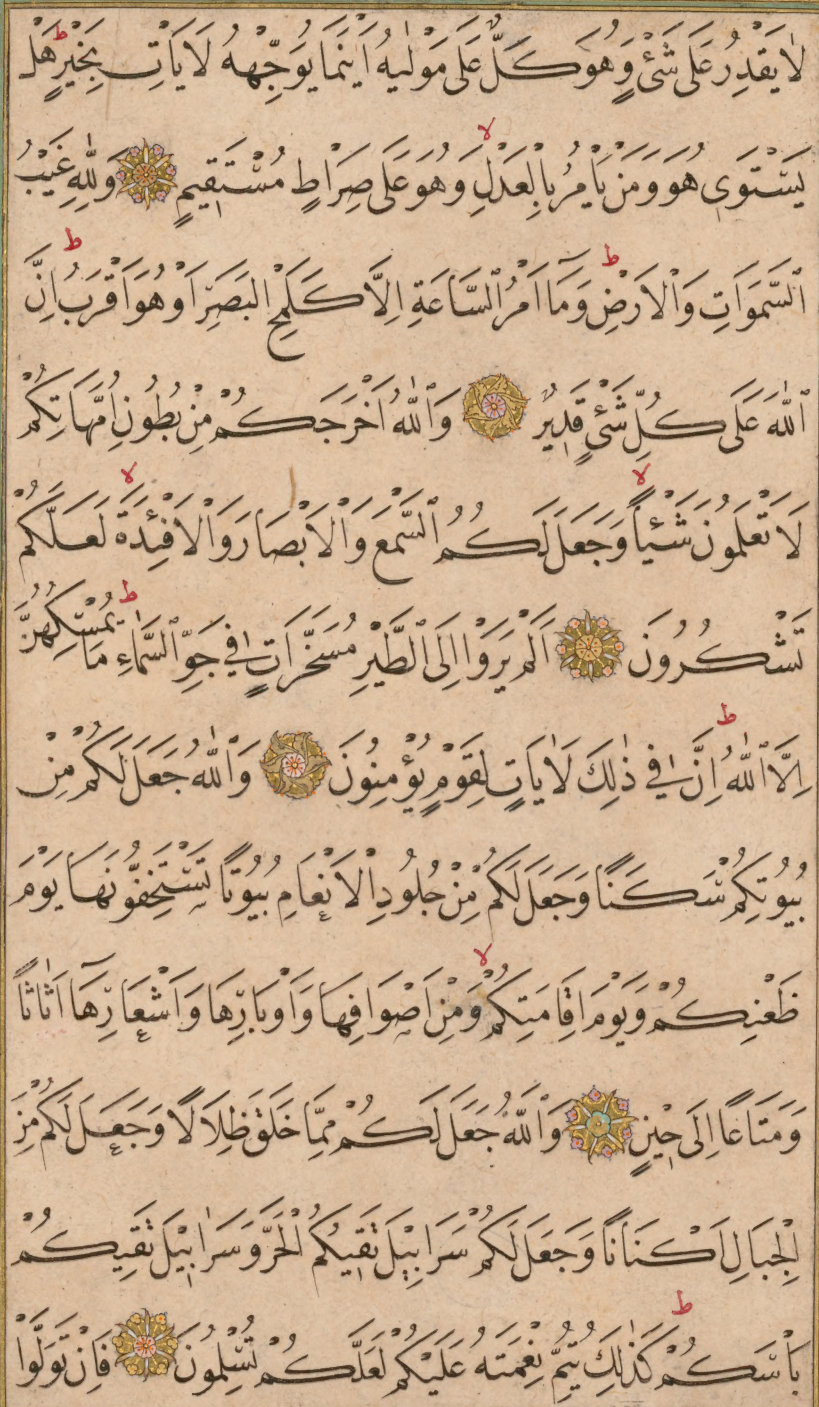 لَا يَقْدِرُ عَلَى شَيْءٍ وَهُوَ كَلٌّ عَلَى مَوْلٰيهُ اَيْنَمَا يُوَجِّهْهُ لَا يَاْتِ بِخَيْرٍ ط هَلْ
يَسْتَوِي هُوَ وَمَنْ يَاْمُرُ بِالْعَدْلِ لا وَهُوَ عَلَى صِرَاطٍ مُسْتَقِيمٍ وَلِلّٰهِ غَيْبُ
السَّمٰوَاتِ وَالْاَرْضِ ط وَمَٓا اَمْرُ السَّاعَةِ اِلَّا كَلَمْحِ الْبَصَرِ اَوْ هُوَ اَقْرَبُ ط اِنَّ
اللّٰهَ عَلَى كُلِّ شَيْءٍ قَدِيرٌ وَاللّٰهُ اَخْرَجَكُمْ مِنْ بُطُونِ اُمَّهَاتِكُمْ
لَا تَعْلَمُونَ شَيْئًا لا وَجَعَلَ لَكُمُ السَّمْعَ وَالْاَبْصَارَ وَالْاَفْئِدَةَ لا لَعَلَّكُمْ
تَشْكُرُونَ اَلَمْ يَرَوْا اِلَى الطَّيْرِ مُسَخَّرَاتٍ فِي جَوِّ السَّمَاءِ ط مَا يُمْسِكُهُنَّ
اِلَّا اللّٰهُ ط اِنَّ فِي ذٰلِكَ لَاٰيَاتٍ لِقَوْمٍ يُؤْمِنُونَ وَاللّٰهُ جَعَلَ لَكُمْ مِنْ
بُيُوتِكُمْ سَكَنًا وَجَعَلَ لَكُمْ مِنْ جُلُودِ الْاَنْعَامِ بُيُوتًا تَسْتَخِفُّونَهَا يَوْمَ
ظَعْنِكُمْ وَيَوْمَ اِقَامَتِكُمْ لا وَمِنْ اَصْوَافِهَا وَاَوْبَارِهَا وَاَشْعَارِهَٓا اَثَاثًا
وَمَتَاعًا اِلَى حِينٍ وَاللّٰهُ جَعَلَ لَكُمْ مِمَّا خَلَقَ ظِلَالًا وَجَعَلَ لَكُمْ مِنَ
الْجِبَالِ اَكْنَانًا وَجَعَلَ لَكُمْ سَرَابِيلَ تَقِيكُمُ الْحَرَّ وَسَرَابِيلَ تَقِيكُمْ
بَاْسَكُمْ ط كَذٰلِكَ يُتِمُّ نِعْمَتَهُ عَلَيْكُمْ لَعَلَّكُمْ تُسْلِمُونَ فَاِنْ تَوَلَّوْا